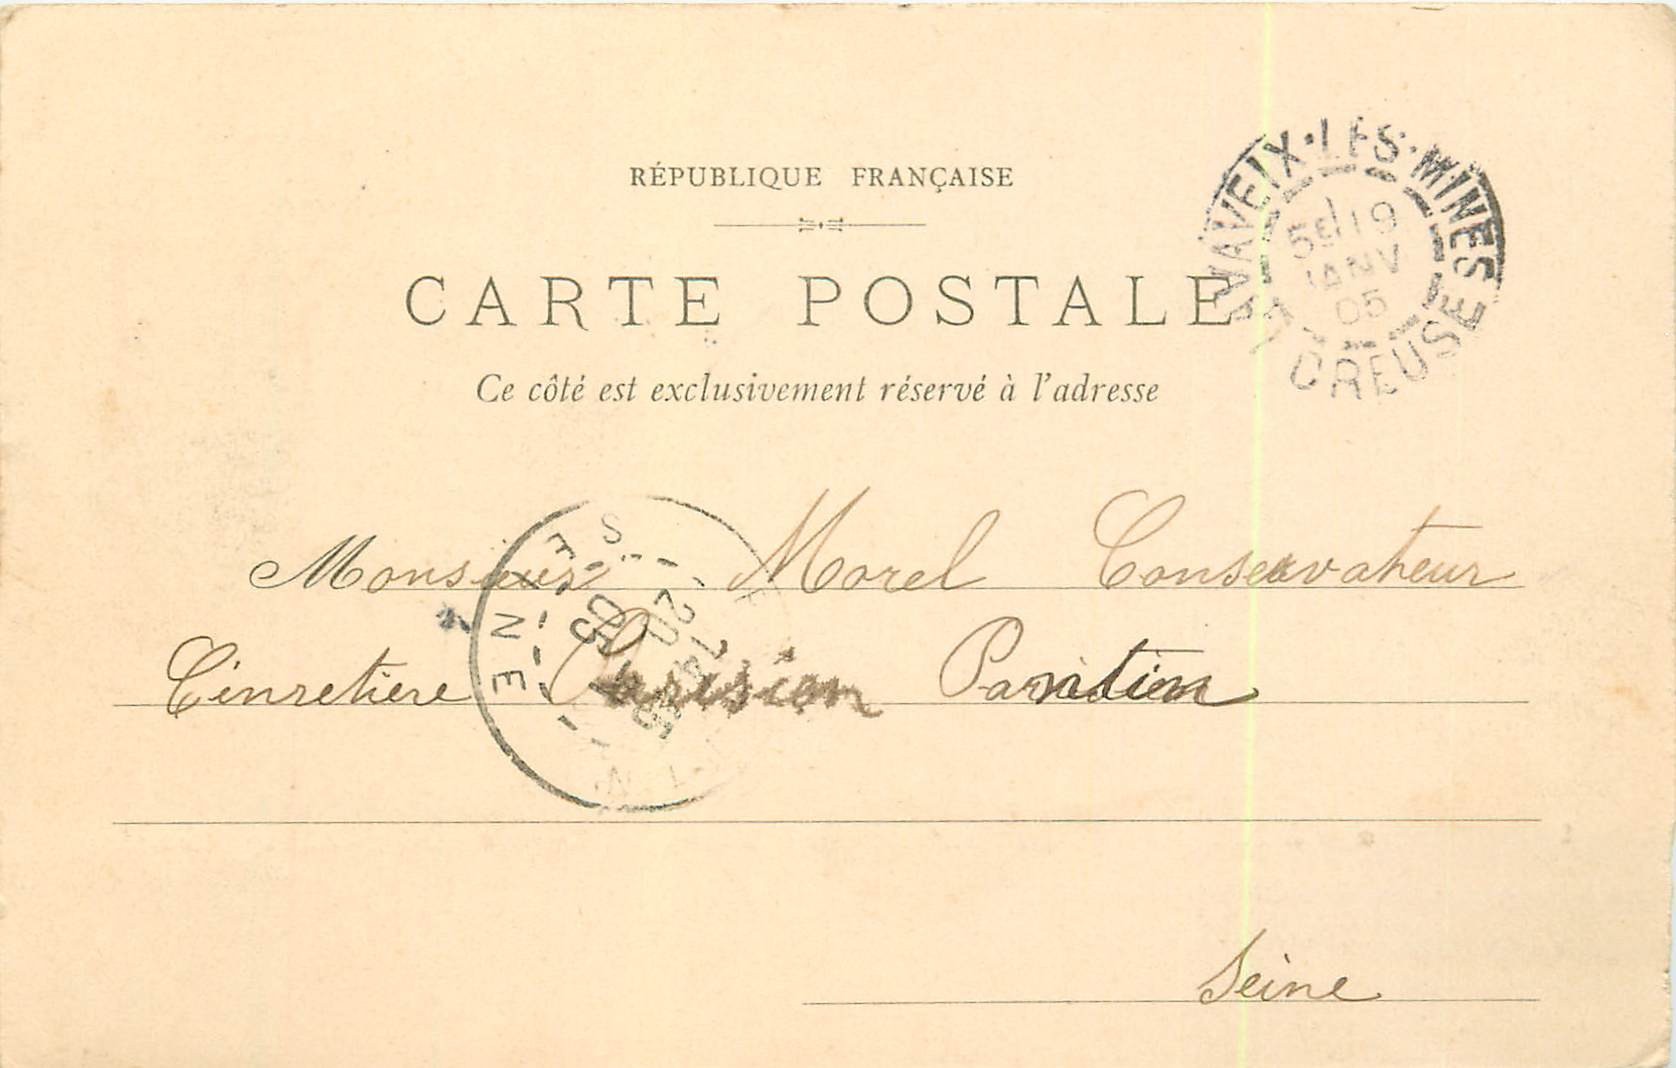 RÉPUBLIQUE FRANÇAISE
CARTE POSTALE
Ce côté est exclusivement réservé à l'adresse
LAVAVEIX·LES·MINES
5E 19
JANV
05
CREUSE
Monsieur Morel Conservateur
Cimetiere Parisien
Seine
SEINE
20
05